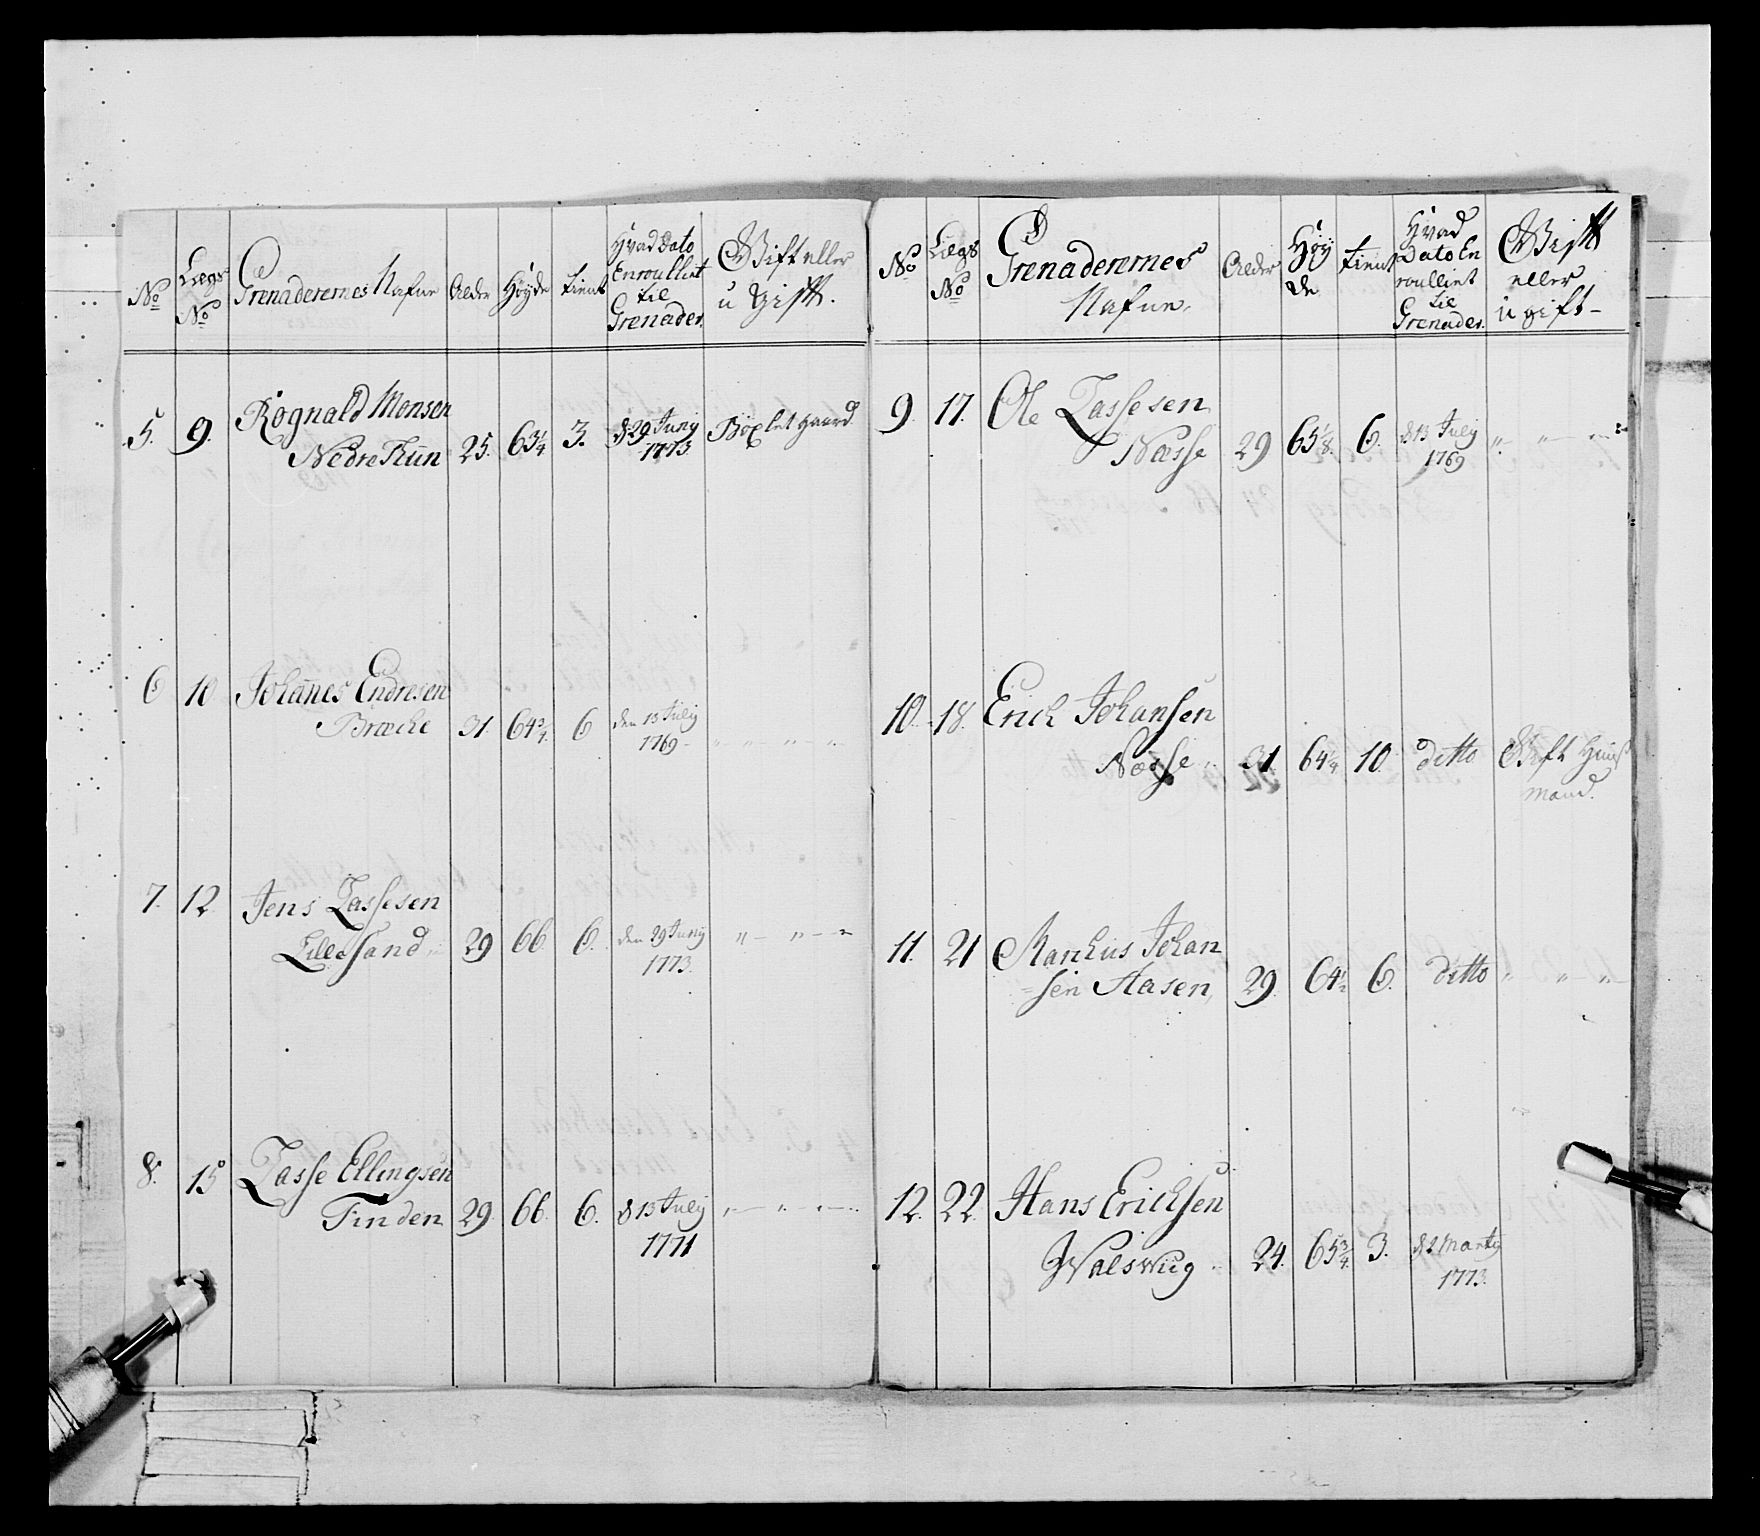 No
Lægs No
Grenaderernes Nafne
Alder
Høyde
tient
Hvad Dato
Enroullint
til
Grenader.
Gift eller
u gift.
5. 9. Rognald Monsen
Nedre Thun 25. 63 1/4 3. d 29 Junÿ
1773. gaard
6 10 Johannes Endresen
Bræche 31. 64 3/4 6 den 13 Julÿ
1769 - " " " "
7. 12 Jens Lassesen
Lille Sand 29 66. 6. den 29 Junÿ
1773. " - " - "
8. 15 Lasse Ellingsen
Finden 29 66. 6. d 13 Julÿ
1771 " - " - "
No
Lægs
No
Grenaderernes
Nafne.
Alder
Høy
de
tient
Hvad
Dato En
roullint
til
Grenader.
Gift
eller
u gift -
9. 17. Ole Lassesen
Næsse 29 65 1/8. 6. d 13 Julÿ
1769 " " "
10. 18. Erich Johansen
Næsse 31. 64 1/4 10. ditto Gift Huus
mand.
11. 21 Johan
sen Aasen, 29. 64 1/2 6. ditto " " "
12. 22. Hans Erichsen
24. 65 3/4 3. d 2 Martÿ
1773.